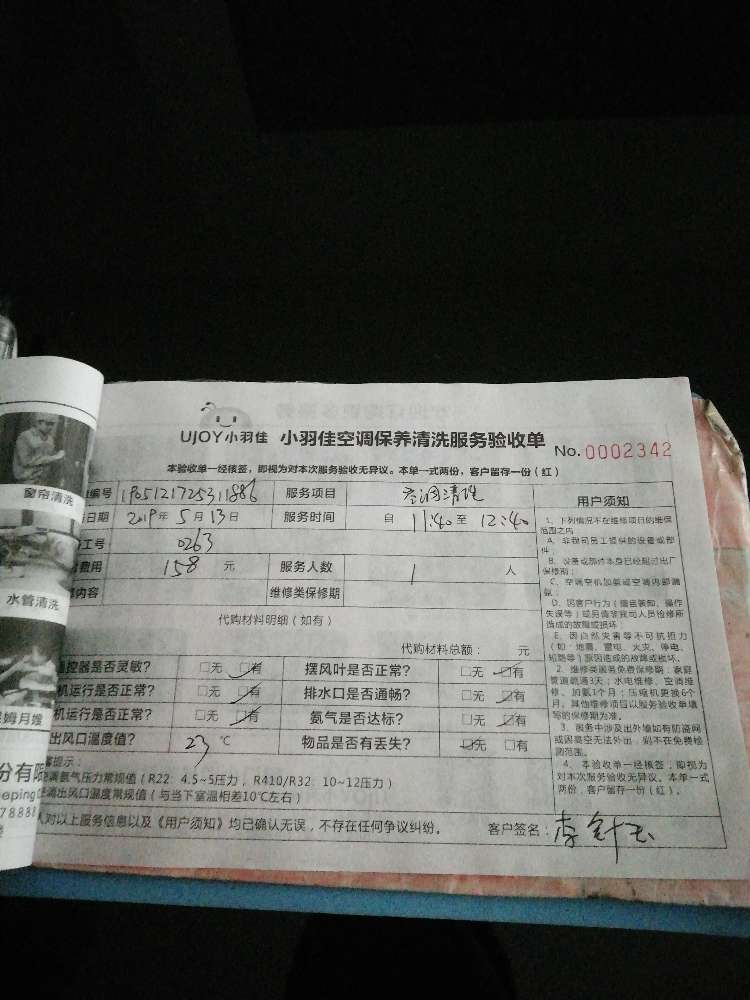 UJOY小羽佳 小羽佳空调保养清洗服务验收单 No.0002342
本验收单一经核签，即视为对本次服务验收无异议。本单一式两份，客户留存一份（红）
编号 190512172531 服务项目 空调清洗
日期 2019年5月13日 服务时间 自 11:40 至 12:40
工号 0263
费用 158 元 服务人数 1 人
内容 维修类保修期
代购材料明细（如有）
代购材料总额： 元
控器是否灵敏？ □无 □有 摆风叶是否正常？ □无 □有
机运行是否正常？ □无 □有 排水口是否通畅？ □无 □有
机运行是否正常？ □无 □有 氨气是否达标？ □无 □有
出风口温度值？ 23 ℃ 物品是否有丢失？ □无 □有
提示：
氨气压力常规值（R22：4.5~5压力，R410/R32：10~12压力）
出风口温度常规值（与当下室温相差10℃左右）
人对以上服务信息以及《用户须知》均已确认无误，不存在任何争议纠纷。 客户签名：
用户须知
1、下列情况不在维修项目的维保
范围之内
A、非我司员工提供的设备或部
件；
B、设备或部件本身已经超过出厂
保修期；
C、空调空机加氨或空调内部漏
氨；
D、因客户行为（擅自装卸、操作
失误等）或另请非我司人员检修所
造成的故障或损坏
E、因自然灾害等不可抗拒力
（如：地震、雷电、火灾、停电、
短路等）原因造成的故障或损坏。
2、维修类服务免费保修期：家庭
管道疏通3天；水电维修、空调维
修、加氨1个月；压缩机更换6个
月。其他维修项目以服务验收单填
写的保修期为准。
3、服务中涉及出外墙如有防盗网
或因高空无法外出，则不在免费检
测范围。
4、本验收单一经核签，即视为
对本次服务验收无异议。本单一式
两份，客户留存一份（红）。
窗帘清洗
水管清洗
保姆月嫂
份有限
eping
78888